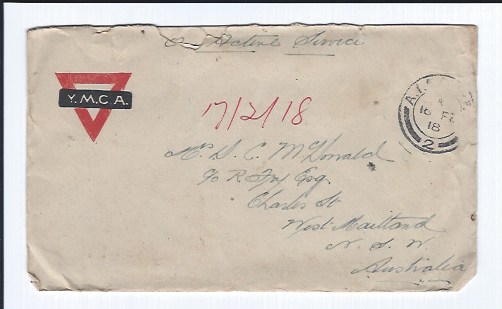 On Active Service
Y.M.C.A.
A.I.
16 FE
18
2
17/2/18
Mr. D. C. McDonald
c/o R. Fry Esq.
Charles St
West Maitland
N. S. W.
Australia